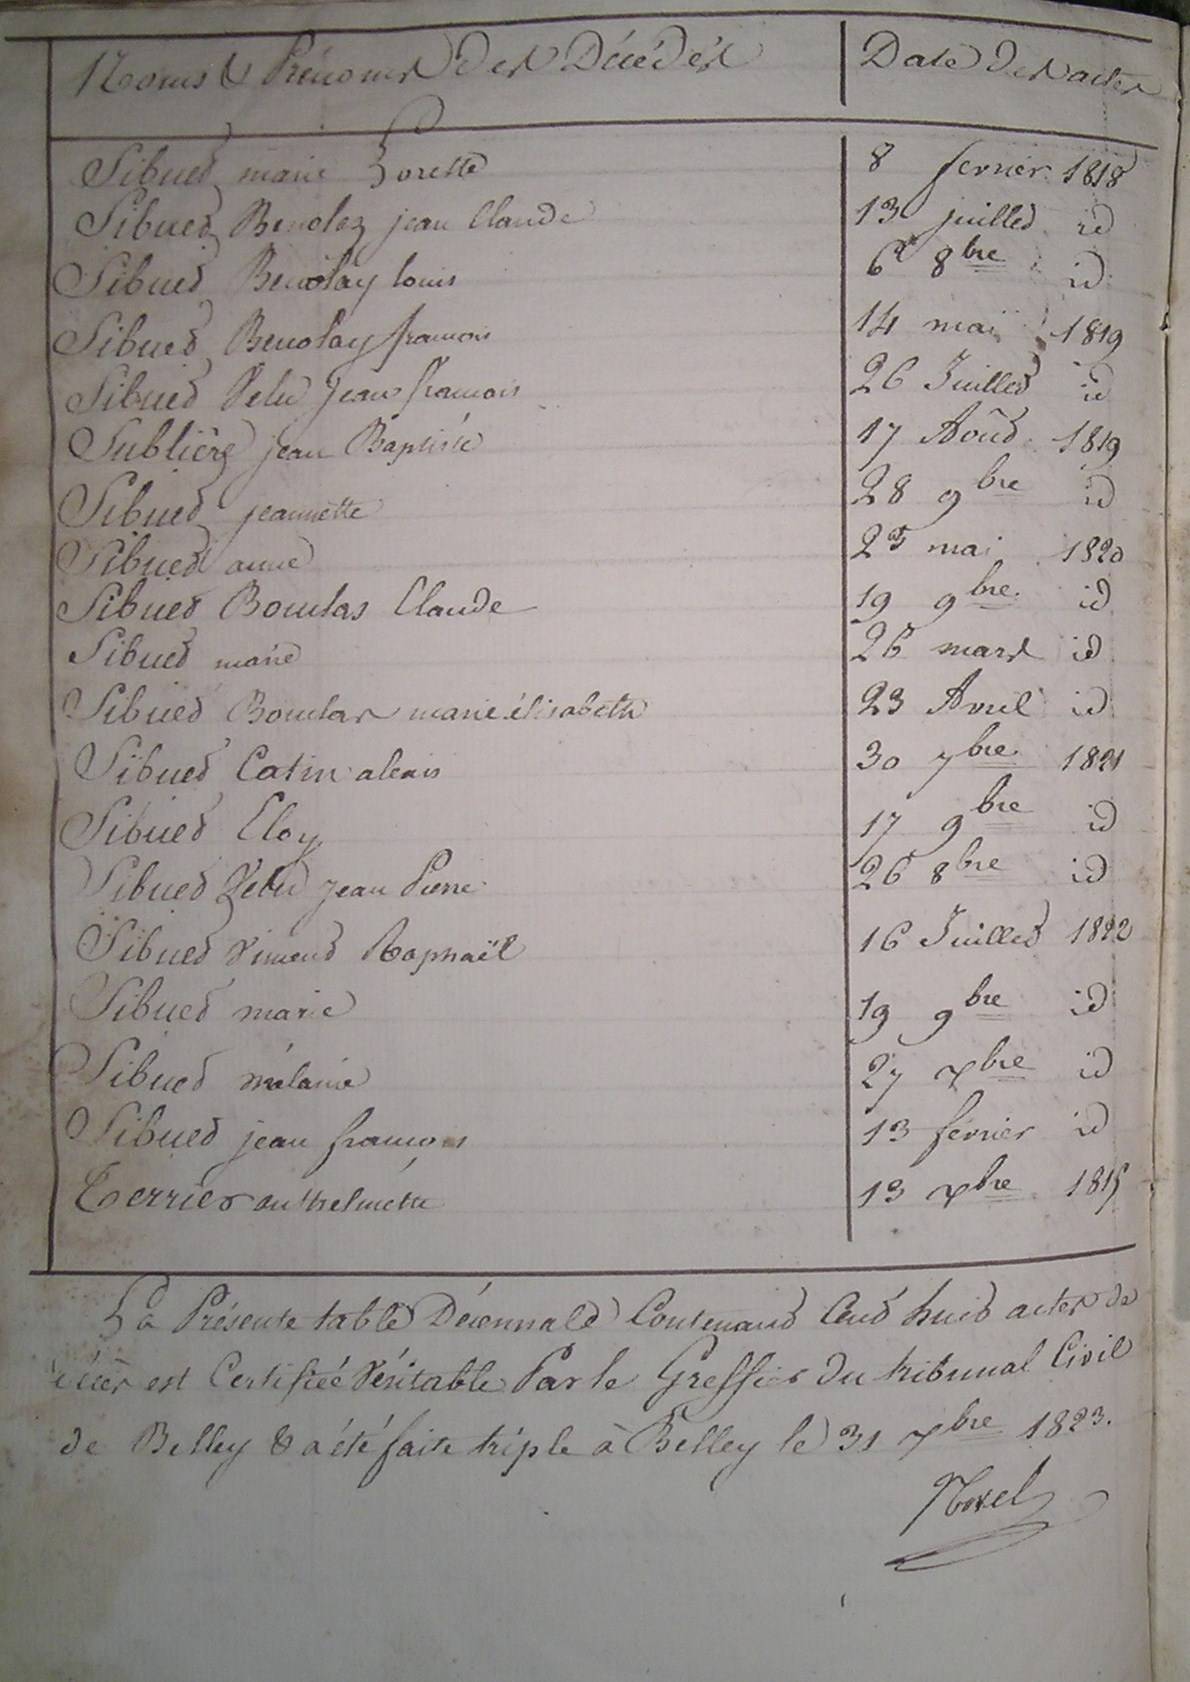 Noms & Prénoms des Décédés Date des actes
Sibued marie Josette 8 fevrier 1818
Sibued Benolez jean Claude 13 juilled id
Sibued Benolay louis 6 8bre id
Sibued Benolay francois 14 mai 1819
Sibued Velu Jean francois 26 Juilled id
Sublière jean Baptiste 17 Aoûd 1819
Sibued jeannette 28 9bre id
Sibued anne 25 mai 1820
Sibued Boudas Claude 19 9bre id
Sibued marie 26 mars id
Sibued Boudas marie élisabeth 23 Avril id
Sibued Catin alexis 30 7bre 1821
Sibued Eloy 17 9bre id
Sibued Velu jean Pierre 26 8bre id
Sibued Simond Raphaël 16 Juilled 1822
Sibued marie 19 9bre id
Sibued mélanie 27 xbre id
Sibued jean françois 13 février id
Terrier anthelmette 13 xbre 1815
La Présente table Décennale Contenand Cend huid actes de
décès est Certifiée Véritable Par le Greffier du tribunal Civil
de Belley & a été faite triple à Belley le 31 xbre 1823.